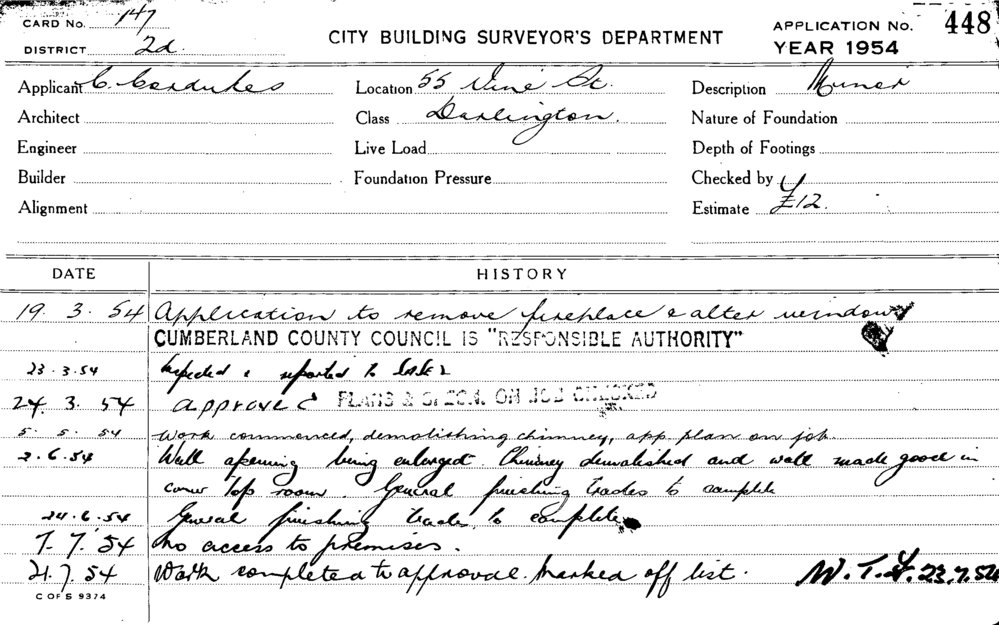 CARD NO. 147
DISTRICT 2d
CITY BUILDING SURVEYOR'S DEPARTMENT
APPLICATION NO. 448
YEAR 1954
Applicant C. Cordukes
Location 55 Vine St.
Description Minor
Architect
Class Darlington.
Nature of Foundation
Engineer
Live Load
Depth of Footings
Builder
Foundation Pressure
Checked by
Alignment
Estimate £12.
DATE HISTORY
19. 3. 54 Application to remove fireplace & alter window
CUMBERLAND COUNTY COUNCIL IS "RESPONSIBLE AUTHORITY"
23.3.54 Inspected & reported to
24. 3. 54 approved PLANS & SPECN. ON JOB CHECKED
5. 5. 54 Work commenced, demolishing chimney, app. plan on job.
2.6.54 Wall opening being enlarged. Chimney demolished and wall made good in
top room. General finishing trades to complete
24.6.54 General finishing trades to complete
7. 7. 54 No access to premises.
21.7.54 Work completed to approval. Marked off list. W.T.Y. 23.7.54
C OF S 9374